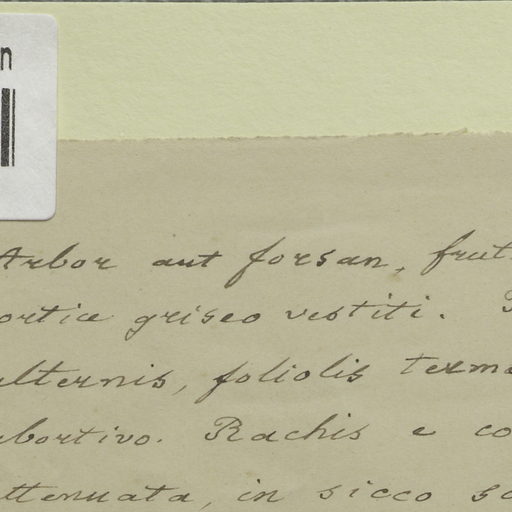 n
Arbor aut forsan, frut
ortice griseo vestiti.
alternis, foliolis term
abortivo. Rachis e co
ttenuata, in sicco s